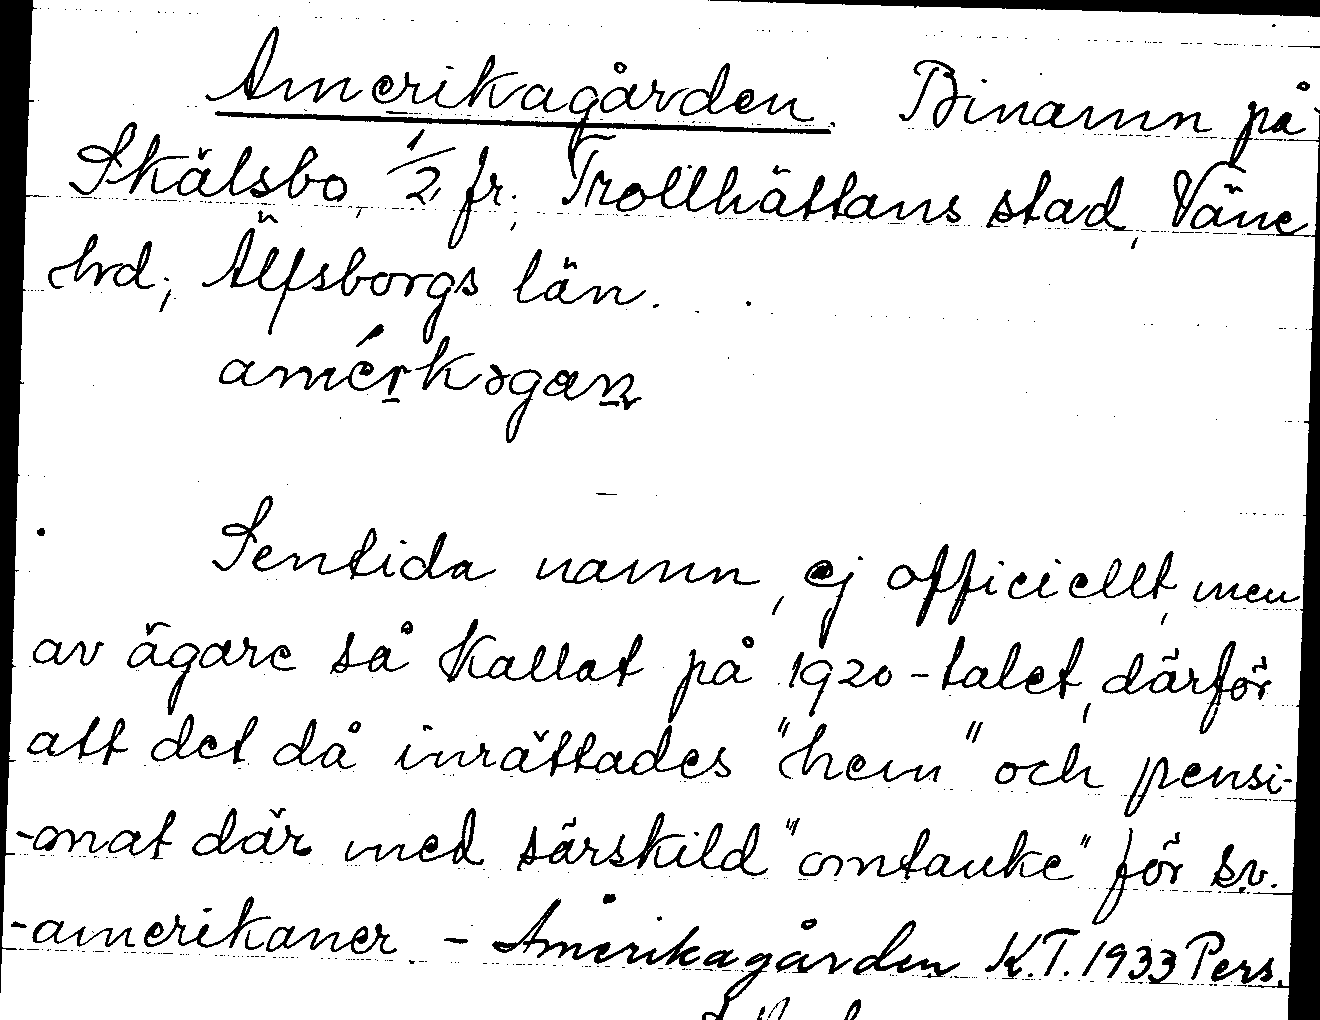 Amerikagården. Binamn på
Skälsbo, 1/2 fr., Trollhättans stad, Väne
hrd; Älfsborgs län.
amérkəgan
Sentida namn, ej officiellt, men
av ägare så kallat på 1920-talet, därför
att det då inrättades "hem" och pensi-
-onat där med särskild "omtanke" för sv.
-amerikaner. - Amerikagården K.T. 1933 Pers.